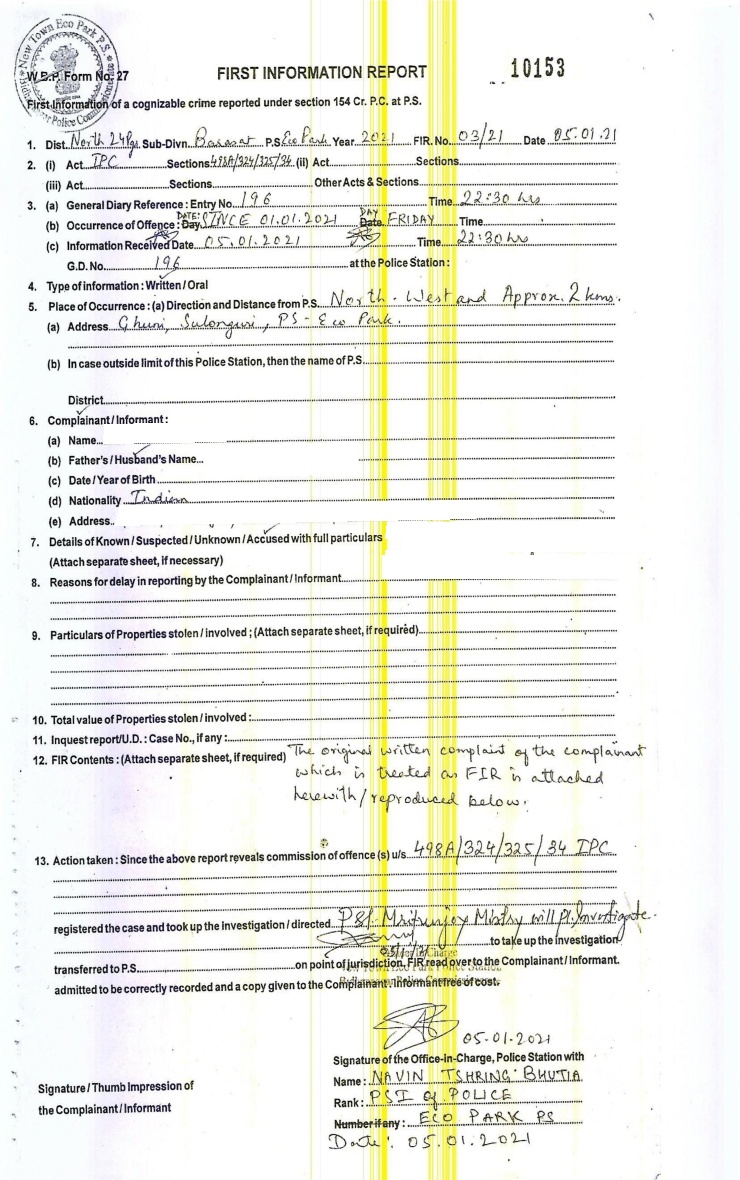 New Town Eco Park P.S.
W.B.P. Form No. 27
FIRST INFORMATION REPORT
10153
First Information of a cognizable crime reported under section 154 Cr. P.C. at P.S.
1. Dist. North 24 Pgs Sub-Divn. Barasat P.S. Eco Park Year 2021 FIR. No. 03/21 Date 05.01.21
2. (i) Act IPC Sections 498A/324/325/34 (ii) Act Sections
(iii) Act Sections Other Acts & Sections
3. (a) General Diary Reference : Entry No. 196 Time 22:30 hrs
(b) Occurrence of Offence : Day DATE: SINCE 01.01.2021 Date DAY FRIDAY Time
(c) Information Received Date 05.01.2021 Time 22:30 hrs
G.D. No. 196 at the Police Station :
4. Type of information : Written / Oral
5. Place of Occurrence : (a) Direction and Distance from P.S. North-West and Approx. 2 kms.
(a) Address Ghuni, Sulonguri, PS - Eco Park.
(b) In case outside limit of this Police Station, then the name of P.S
District
6. Complainant / Informant :
(a) Name
(b) Father's / Husband's Name
(c) Date / Year of Birth
(d) Nationality Indian
(e) Address
7. Details of Known / Suspected / Unknown / Accused with full particulars
(Attach separate sheet, if necessary)
8. Reasons for delay in reporting by the Complainant / Informant
9. Particulars of Properties stolen / involved ; (Attach separate sheet, if required)
10. Total value of Properties stolen / involved :
11. Inquest report/U.D. : Case No., if any :
12. FIR Contents : (Attach separate sheet, if required) The original written complaint of the complainant
which is treated as FIR is attached
herewith / reproduced below.
13. Action taken : Since the above report reveals commission of offence (s) u/s 498A/324/325/34 IPC
registered the case and took up the investigation / directed PSI Mritunjoy Mistry will Pl. Investigate.
to take up the investigation
transferred to P.S. on point of jurisdiction, FIR read over to the Complainant / Informant.
admitted to be correctly recorded and a copy given to the Complainant / Informant free of cost.
05.01.2021
Signature of the Office-in-Charge, Police Station with
Signature / Thumb Impression of
the Complainant / Informant
Name : NAVIN TSHRING BHUTIA
Rank : PSI of POLICE
Number if any : ECO PARK PS
Date : 05.01.2021